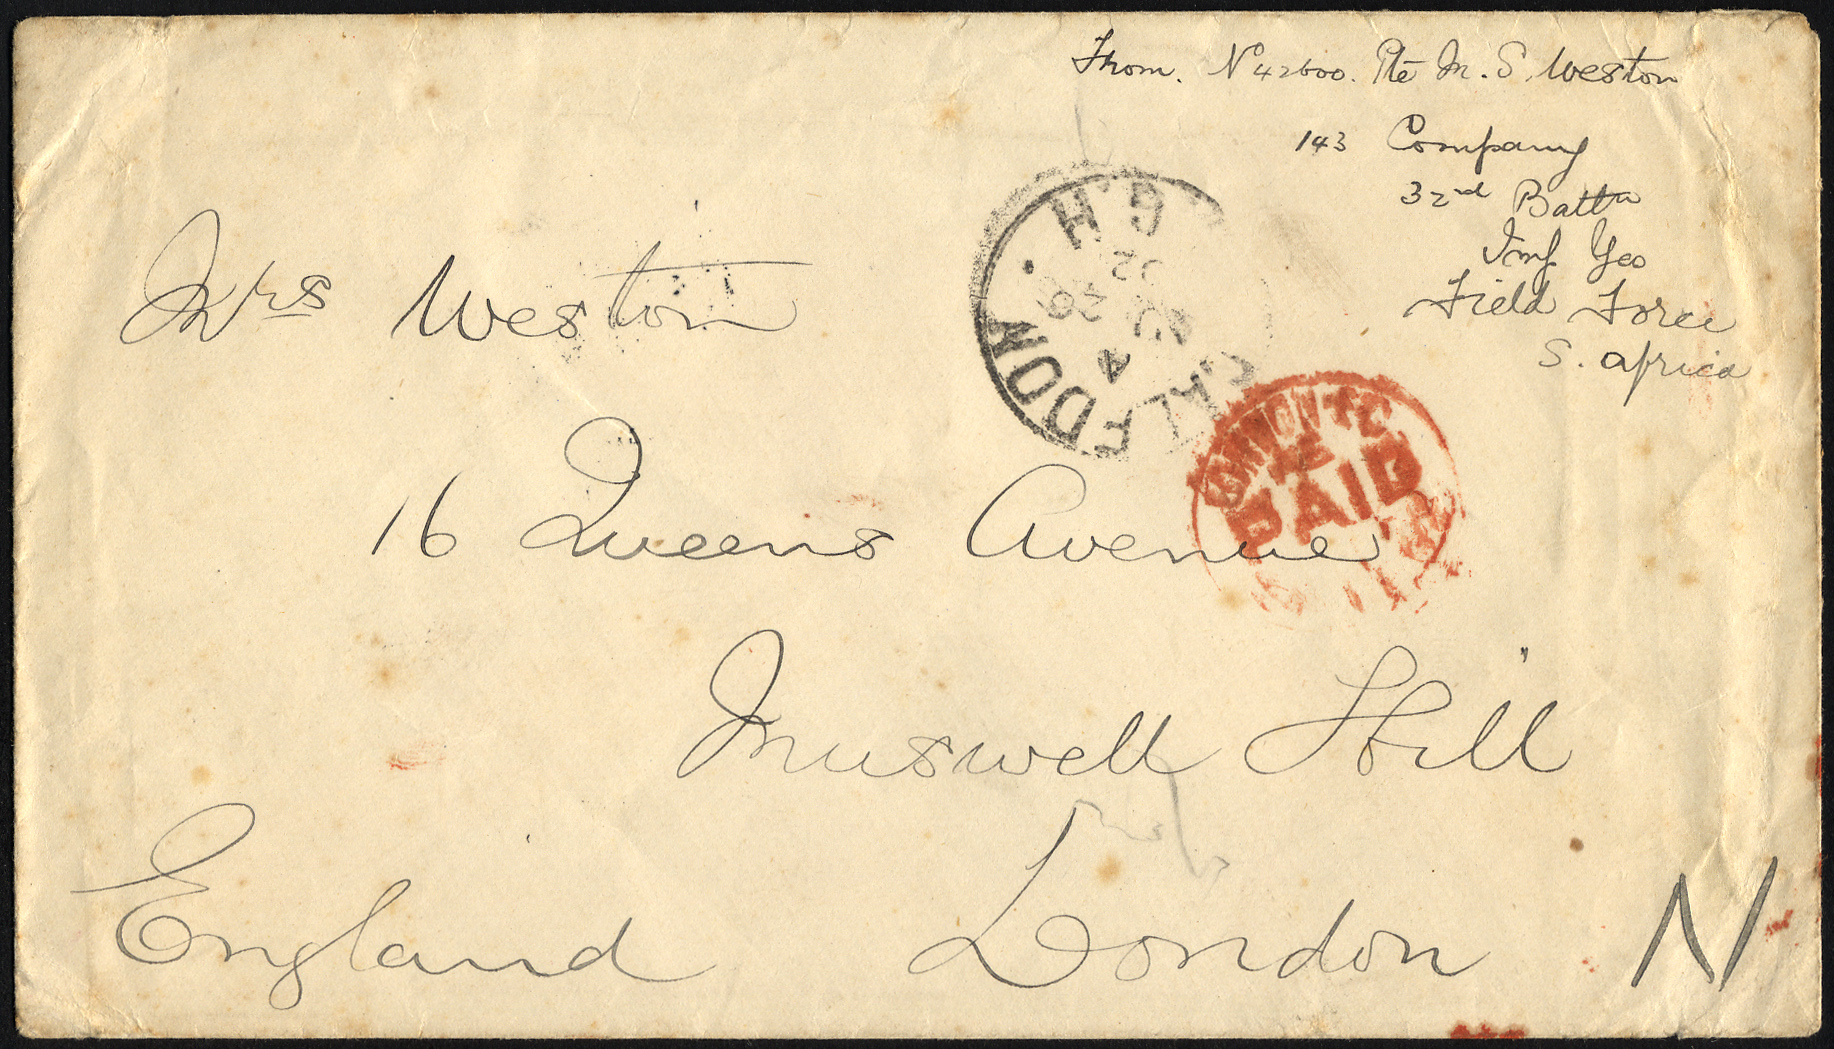 From. No 42600. Pte M. S. Weston
143 Company
32nd Battn
Imp Yeo
Field Force
S. Africa
Mrs Weston
16 Queens Avenue
Muswell Hill
London
England
N
CALEDON
G.H
4
AU 26
02
PAID